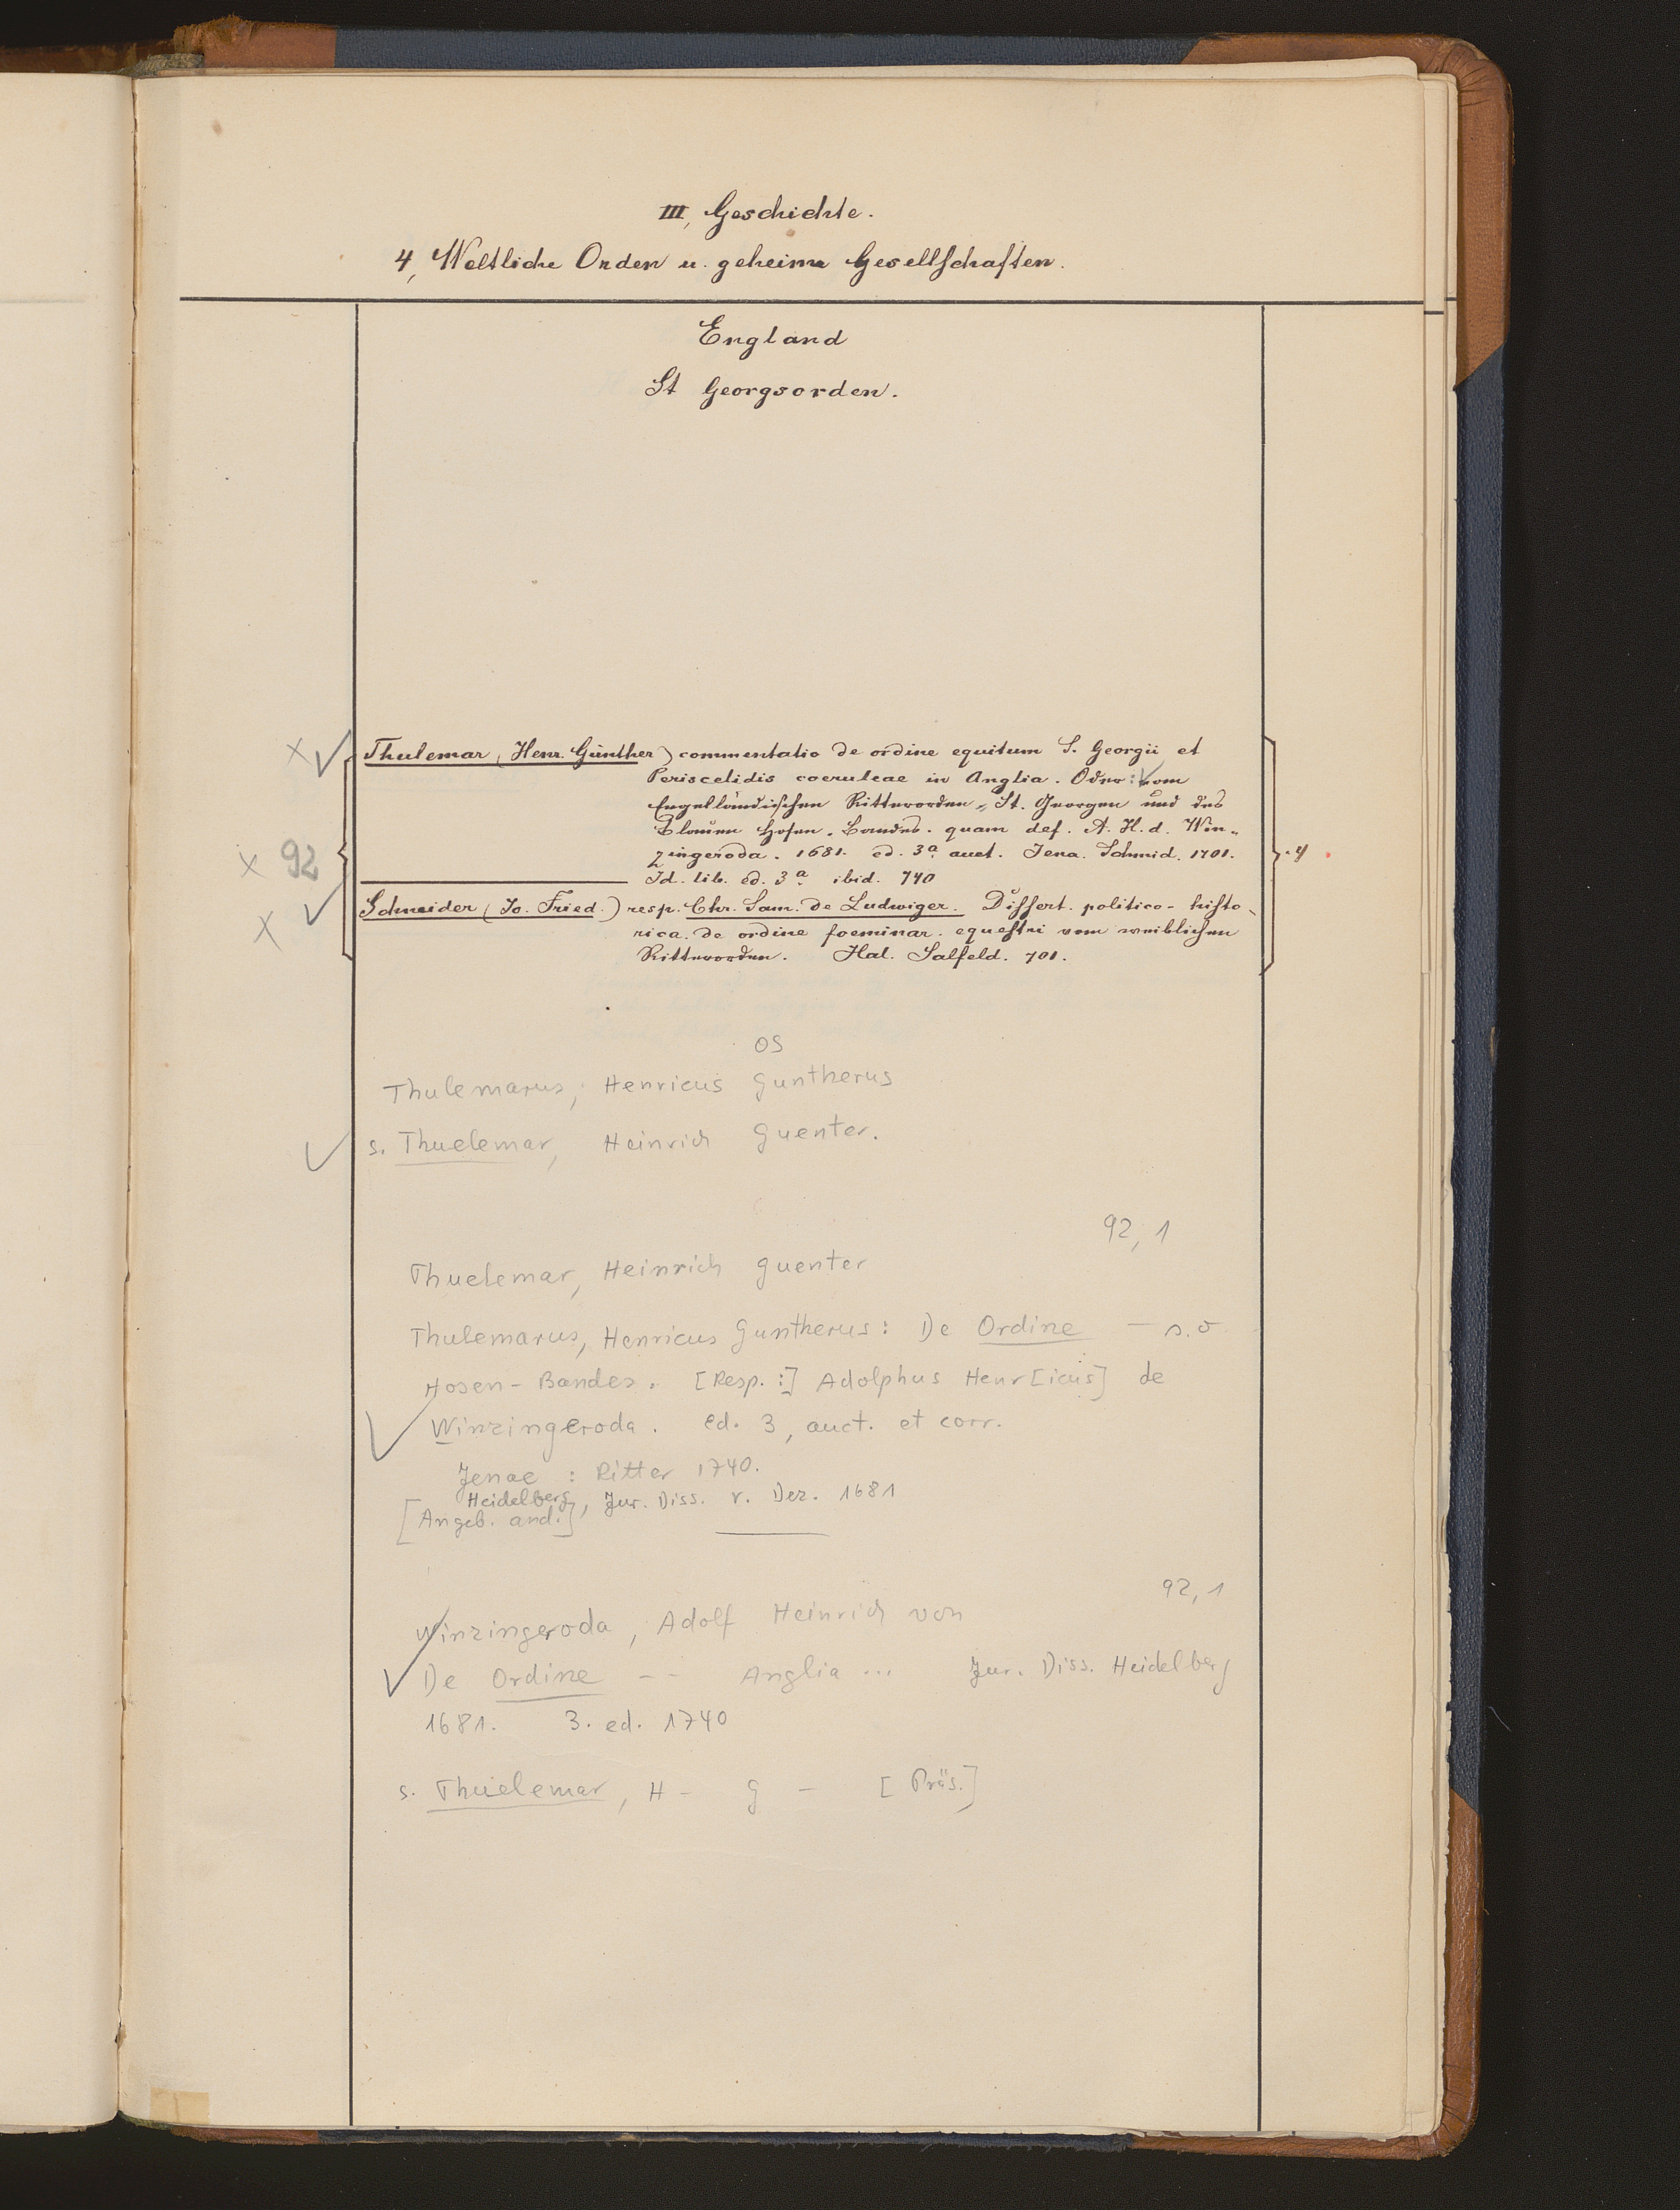 III, Geschichte.
4, Weltliche Orden u. geheime Gesellschaften.
England
St Georgsorden.
Thulemar (Henr. Günther) commentatio de ordine equitum S. Georgii et
Periscelidis coeruleae in Anglia. Oder: vom
Engelländischen Ritterorden St. Georgen und des
Blauen Hosen-Bandes. quam def. A. H. d. Win-
zingeroda. 1681. ed. 3a. auct. Jena. Schmid. 1701.
92
Id. lib. ed. 3a. ibid. 740
Schneider (Jo. Fried.) resp. Chr. Sam. de Ludwiger. Dissert. politico-histo-
rica. de ordine foeminar. equestri vom weiblichen
Ritterorden. Hal. Salfeld. 701.
4
OS
Thulemarus, Henricus Guntherus
s. Thuelemar, Heinrich Guenter.
92, 1
Thuelemar, Heinrich Guenter
Thulemarus, Henricus Guntherus: De Ordine — s. o
Hosen-Bandes. [Resp.:] Adolphus Henr[icus] de
Winzingeroda. ed. 3, auct. et corr.
Jenae: Ritter 1740.
Heidelberg, Jur. Diss. v. Dez. 1681
[Angeb. and.]
92, 1
Winzingeroda, Adolf Heinrich von
De Ordine -- Anglia ... Jur. Diss. Heidelberg
1681. 3. ed. 1740
s. Thuelemar, H - G - [Präs.]